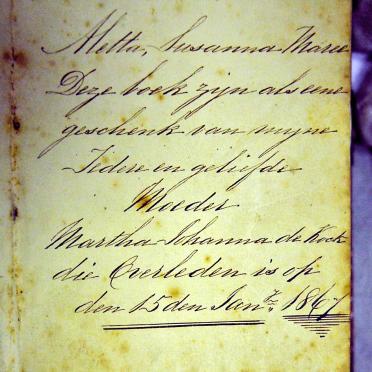 Aletta, Susanna Maree
Deze boek zijn als eene
geschenk van myne
Tedere en geliefde
Moeder
Martha Johanna de Kock
die Overleden is op
den 15den Jany. 1867